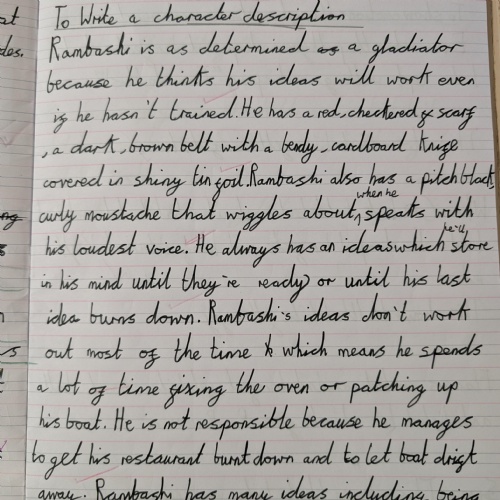 To Write a character description
Rambashi is as determined as a gladiator
because he thinks his ideas will work even
if he hasn't trained. He has a red, checkered scarf
, a dark, brown belt with a bendy, cardboard knife
covered in shiny tin foil. Rambashi also has a pitch black
curly moustache that wiggles about when he speaks with
his loudest voice. He always has an ideas which he'll store
in his mind until they're ready) or until his last
idea burns down. Rambashi's ideas don't work
out most of the time which means he spends
a lot of time fixing the oven or patching up
his boat. He is not responsible because he manages
to get his restaurant burnt down and to let boat drift
away. Rambashi has many ideas including being
at
des.
ng
s